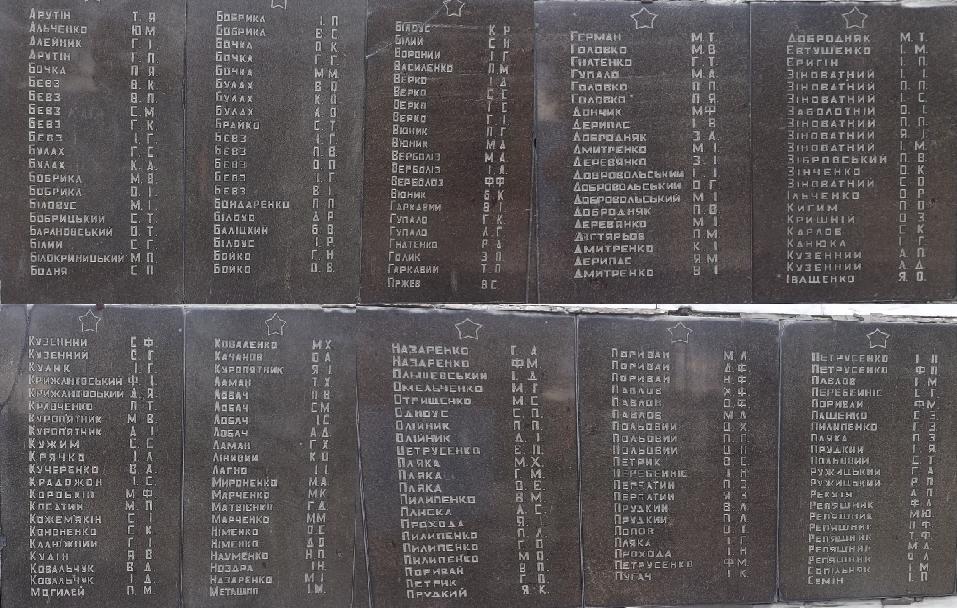 Арутін Т. Я
Альченко Ю М
Алейник Г І
Арутін Г. П.
Бочка П Я.
Бевз В. К.
Бевз В. П.
Бевз С. М
Бевз Г. К
Бевз І. Г.
Булах Г. С
Булах К. А.
Бобрика М. В
Бобрика О. І.
Біловус М. І
Бобрицький С. Т.
Барановський О. Т.
Білий С Г.
Білокриницький М П
Бодня С П
Бобрика І. П
Бобрика В С
Бочка О К
Бочка Г. Г.
Бочка М М
Булах
Булах К
Булах
Брайко С. Т
Бевз І. Г
Бевз П. В
Бевз О П
Бевз Г. І
Бевз В І
Бондаренко П П
Білоус Д Р
Баліцхин Б В
Білоус І. Р.
Бойко Г. Н
Бойко О. В.
Білоус К Р
Білий С Н
Вороний І Г
Василенко П М
Верко І Д
Верко С Є
Верко
Верко Г І
Вюник П Г
Вюник М А
Верболіз М А.
Верболіз І А
Верболоз Ф Ф
Вюник Б К
Гаркавий В І
Гупало Г К.
Гупало А. Г.
Гнатенко Р А
Голик З П
Гаркавий Т П
Пржев В С.
Герман М. Т.
Головко М. В
Гнатенко Г. Т.
Гупало М. А.
Головко П П
Головко П Я
Дончик М Ф
Дерипас І В
Добродняк З А.
Дмитренко М І
Деревянко З. І
Добровольський Г. І
Добровольський О Г.
Добровольський М І
Добродняк П. О
Деревянко М.
Дігтярьов П М
Дмитренко К І
Дерипас Я М
Дмитренко В І
Добродняк М. Т.
Евтушенко І. М.
Еригін І. П
Зіноватний І. І
Зіноватний П. І.
Зіноватний І. С
Заболотній О. І
Зіноватний П. П.
Зіноватний Я. І
Зіноватний М. І.
Зібровський П. В.
Зінченко О. К
Зіноватний С О
Ільченко О Р
Кигим Р О
Кришній О З
Карлов С К
Канюка І Г
Кузенний А П
Кузенний А Д
Іващенко Я. О.
Кузенний С Ф.
Кузенний С Г.
Кулік І Г
Крижанговський Ф І.
Крижанговський А Я.
Кравченко П Т
Куроп'ятник М В
Куроп'ятник А І
Кужим С С
Крячко І А
Кучеренко В А.
Крадожон І. С.
Коробкін М Ф
Косатий М. П
Кожем'якін С Г
Кононенко Г К
Каліжний Г І
Кудін Я В
Ковальчук В Д
Ковальчук І Д.
Могилей П. М
Коваленко М Х
Качанов О А
Куропятник Я І
Ламан Т Х
Лобач П В
Лобач С М
Лобач І С
Лобач А Д
Ламан Г Х
Лінивий К О
Лагно І І
Мироненко М А
Марченко М К
Матюшко Г. Д
Марченко М М
Німенко О С
Німенко Д О
Науменко Н П
Ноздра І Н.
Назаренко М І
Меташоп І. М.
Назаренко Г. А
Назаренко Ф М
Ольшевський І. Д
Омельченко М Г
Отрищенко М. С
Одноус С. П.
Олійник П. П
Олійник Д. І
Петрусенко Е. П
Пляка М. Х.
Пляка Г М.
Пляка О. Е
Пилипенко В М
Плиска А. С
Прохода Я
Пилипенко П А
Пилипенко Г М О
Пилипенко М О
Поривай В П
Петрик Г О.
Прудкий Я К.
Поривай М А
Поривай А Ф
Поривай Н Ф
Павлов Х Ф
Павлов О Ф
Павлов М А
Польовий О Х
Польовий П Г.
Польовий О П
Петрик В С
Перебейніс І Н
Перлатий П З
Перлатин Я З
Прудкий В Л
Прудкий П А
Попов О І
Пляка Г І
Прохода І Н
Петрусенко Ф М
Пугач І К
Петрусенко І П
Петрусенко Ф П
Павлов І М
Перебейніс С Г
Поривай Ф М
Пащенко С З
Пилипенко Г З
Пляка П З
Прудкий І Я
Польовий С Т
Ружицький Г А
Ружицький Р П
Рекутя А П
Репяшник Ф А
Репяшник М Ю
Репяшник П Ф
Репяшник Т Ф
Репяшник М А
Репяшник О О
Сопільняк І М
Семін І. П